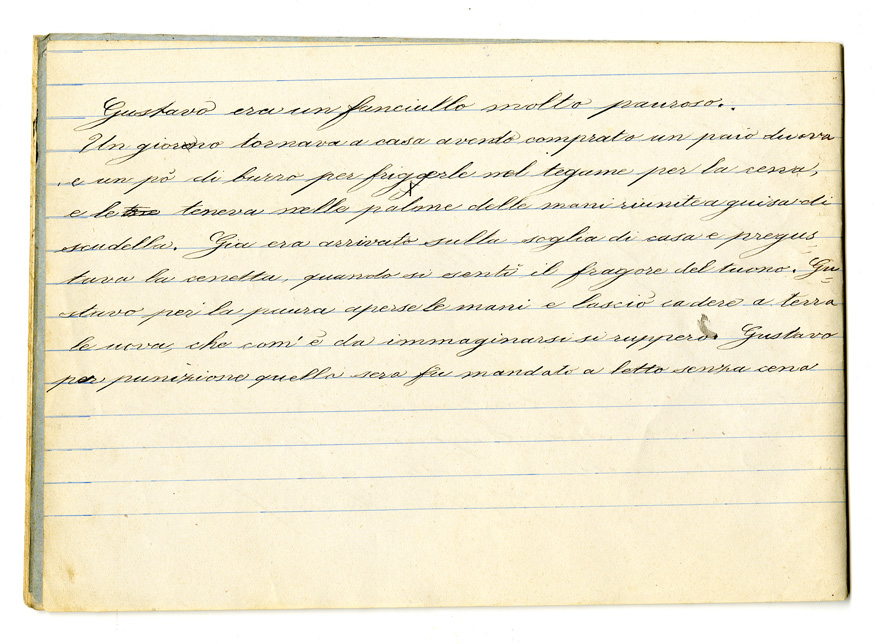 Gustavo era un fanciullo molto pauroso.
Un giorno tornava a casa avendo comprato un paio d'uova
e un pò di burro per friggerle nel tegame per la cena,
e le teneva nelle palme delle mani riunite a guisa di
scudella. Già era arrivato sulla soglia di casa e pregus
tava la cenetta, quando si sentì il fragore del tuono. Gu
stavo per la paura aperse le mani e lasciò cadere a terra
le uova, che com'è da immaginarsi si ruppero. Gustavo
per punizione quella sera fu mandato a letto senza cena